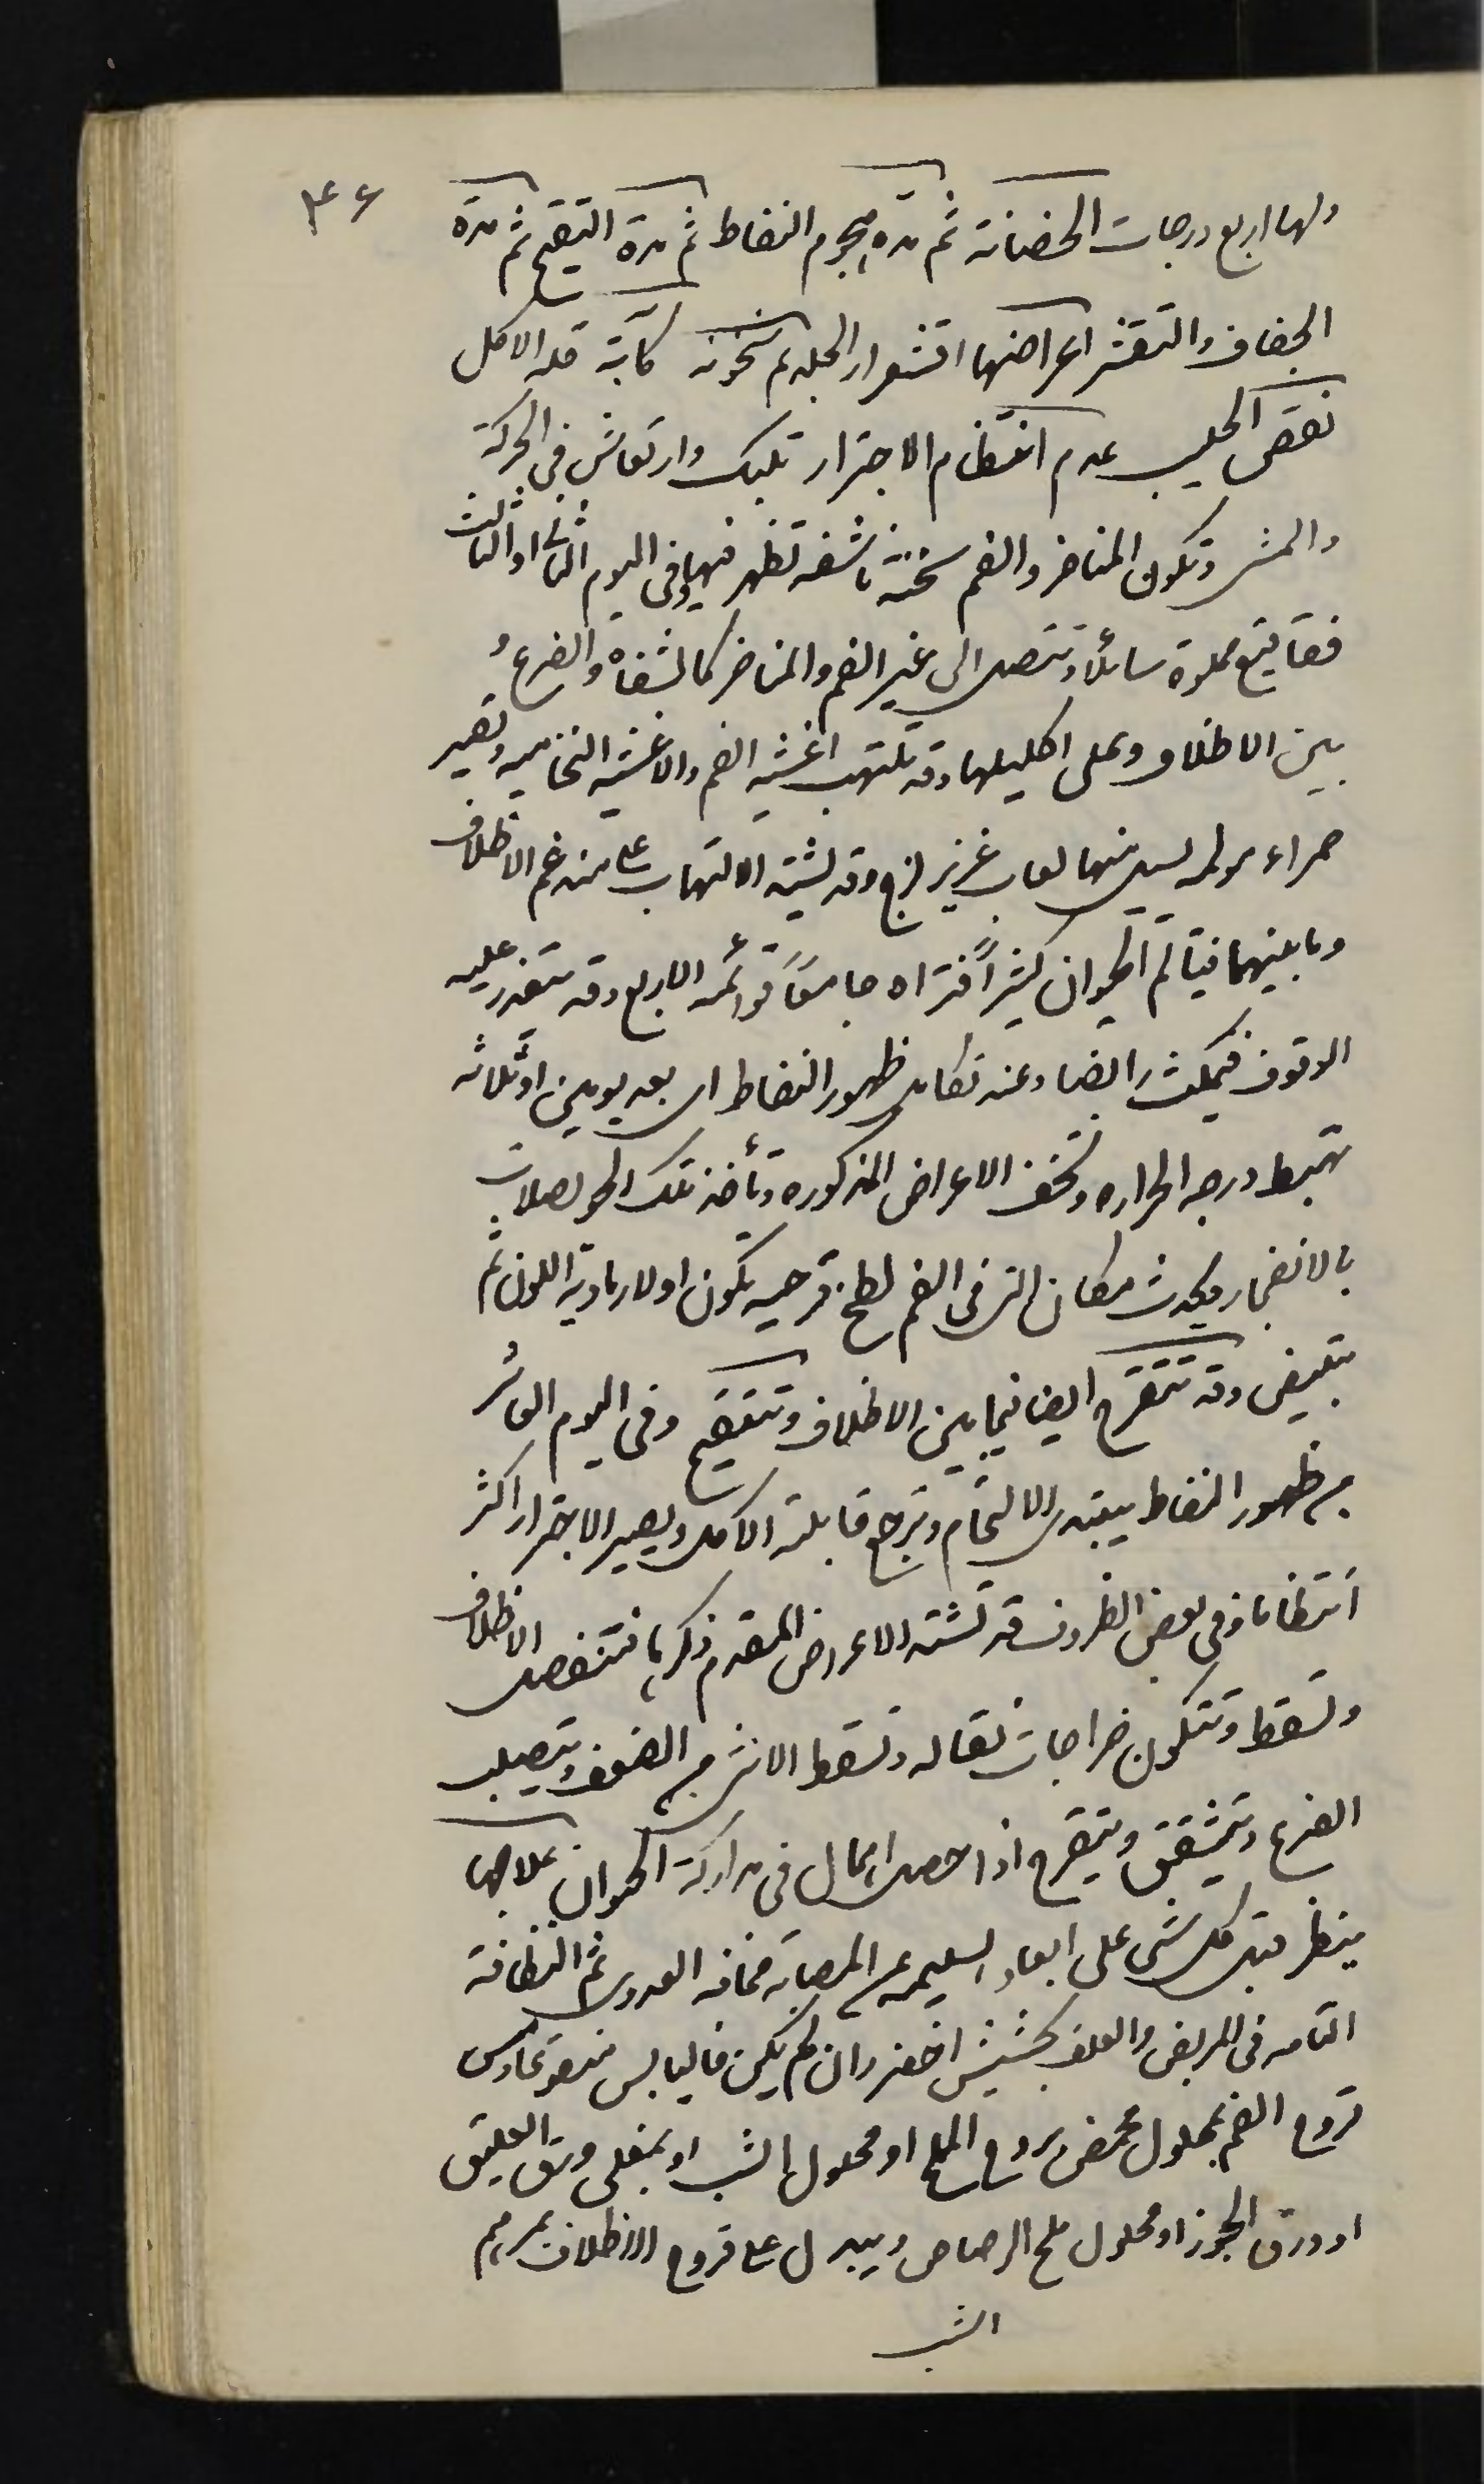 ٤٦
ولها اربع درجات الحضانة ثم مدة هجوم النفاط ثم مدة التقيح ثم مدة
الجفاف والتقشر اعراضها اقشعرار الجلد ثم سخونه كآبة قلة الاكل
نقص الحليب عدم انتظام الاجترار تلبك وارتعاش في الحركة
والمشى وتكون المناخر والفم سخنة ناشفه تظهر فيها وفى اليوم الثانى او الثالث
فقاقيع مملوة سائلاً وتتصل الى غير الفم والمناخر كالشفاه والضرع و
بين الاظلاف وعلى اكليلها وقد تلتهب اغشيه الفم والاغشيه النخاميه وتصير
حمراء مولمه يسيل منها لعاب غزير لزج وقد يشتد الالتهاب على الاظلاف
وما بينهما فيتألم الحيوان كثيراً فتراه جامعاً قوائمه الاربع وقد يتعذر عليه
الوقوف فيمكث رابضا وعند تكامل ظهور النفاط اى بعد يومين او ثلاثه
تهبط درجه الحراره وتخف الاعراض المذكوره وتأخذ تلك الحويصلات
بالانفجار ويحدث مكان التى فى الفم لطخ قرحيه تكون اولا رمادية اللون ثم
تبيض وقد تتقرح ايضا فيما بين الاظلاف وتتقيح وفى اليوم العاشر
من ظهور النفاط يبتدى الالتحام وترجع قابلة الاكل ويصير الاجترار اكثر
انتظاما وفى بعض الظروف قد تشتد الاعراض المتقدم ذكرها فتنفصل الاظلاف
وتسقط وتتكون خراجات نقاله وتسقط الانثى من الضعف ويتصلب
الضرع ويتشقق ويتقرح اذا حصل اهمال فى مداركة الحيوان علاجها
ينظر قبل كل شى على ابعاد السليمه عن المصابة مخافة العدوى ثم النظافة
التامه فى المربض والعلف بحشيش اخضر وان لم يكن فاليابس منقوعا وتمس
قروح الفم بمحلول محمض بروح الملح او محلول الشب او بمغلى ورق العليق
او ورق الجوز او محلول ملح الرصاص ويبدل على قروح الاظلاف بمرهم
الشب